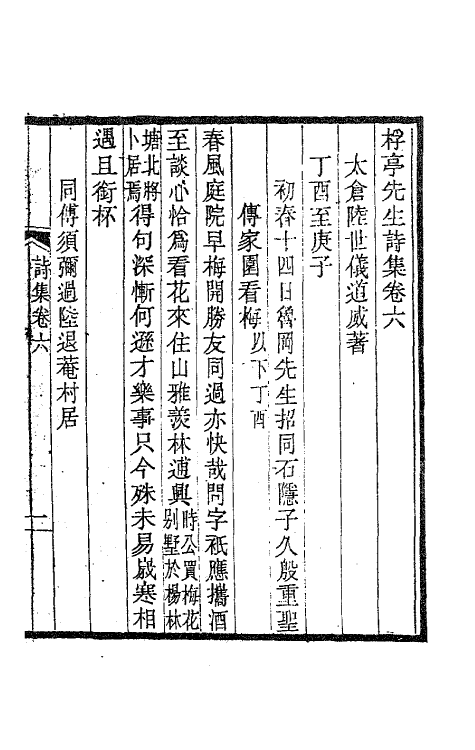 桴亭先生詩集卷六
太倉陸世儀道威著
丁酉至庚子
初春十四日魯岡先生招同石隱子久殷重聖
傳家園看梅以下丁酉
春風庭院早梅開勝友同過亦快哉問字秖應攜酒
至談心恰爲看花來住山雅羨林逋興時公買梅花別墅於楊林
塘北將卜居焉得句深慚何遜才樂事只今殊未易歲寒相
遇且銜杯
同傅須彌過陸退菴村居
詩集卷六
一